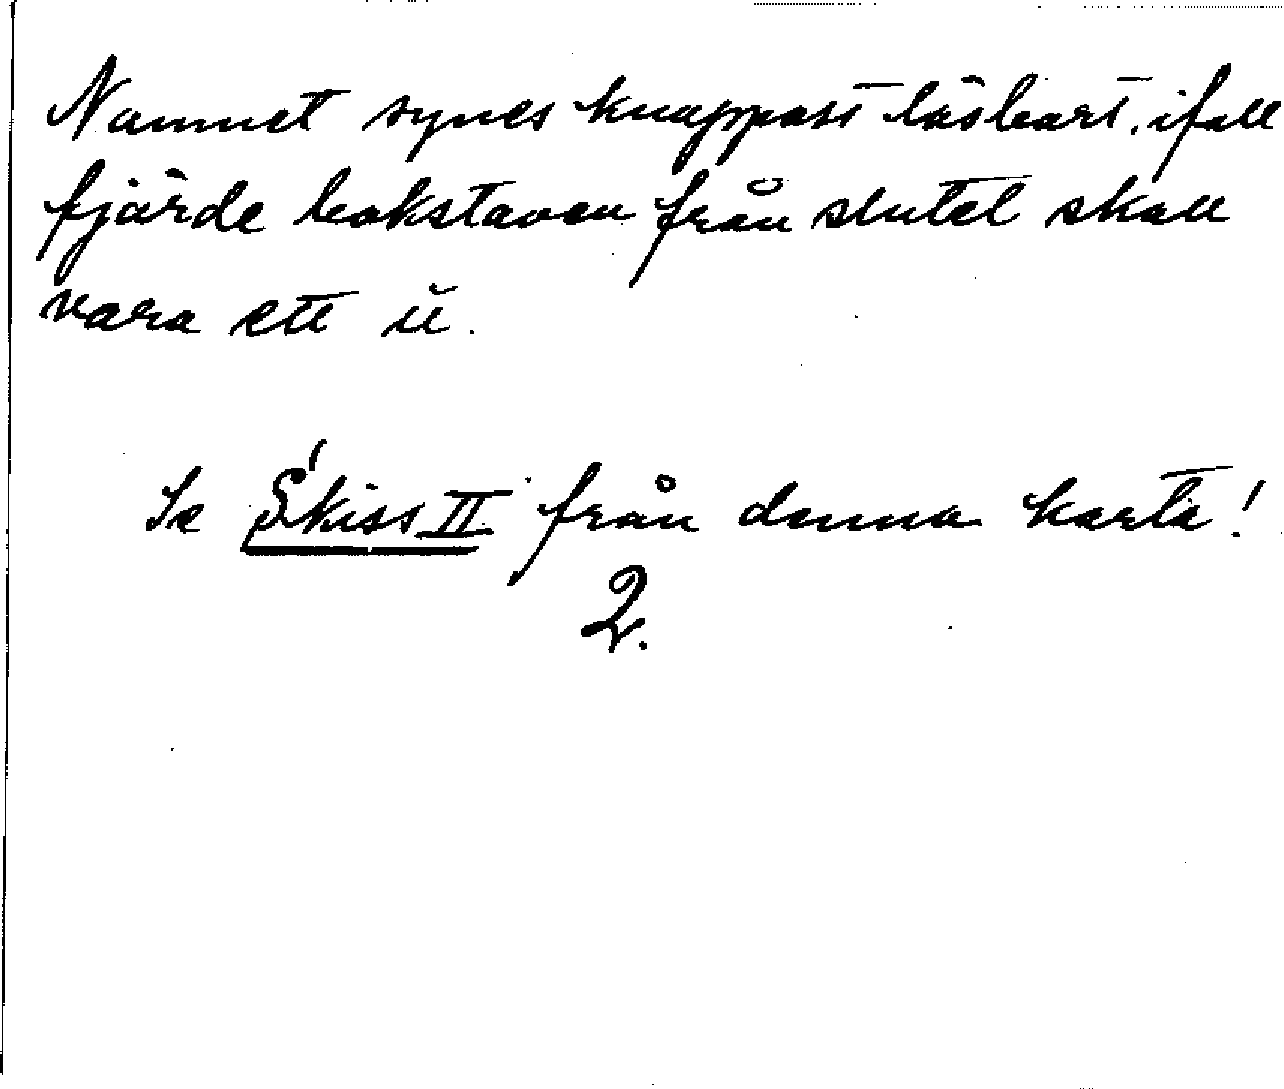 Namnet synes knappast läsbart, ifall
fjärde bokstaven från slutet skall
vara ett ŭ.
Se Skiss II från denna karta!
2.